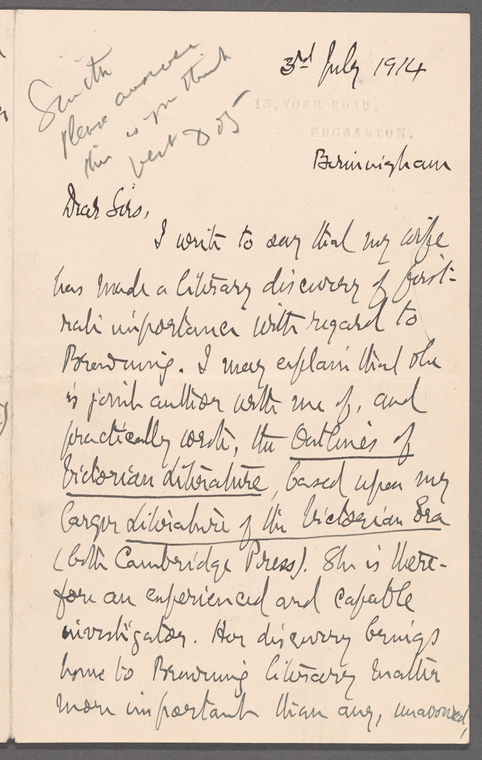 Smith
Please answer
this as you think
best
3rd July 1914
13, YORK ROAD,
EDGBASTON,
Birmingham
Dear Sirs,
I write to say that my wife
has made a literary discovery of first-
rate importance with regard to
Browning. I may explain that she
is joint author with me of, and
practically wrote, the Outlines of
Victorian Literature, based upon my
larger Literature of the Victorian Era
(both Cambridge Press). She is there-
fore an experienced and capable
investigator. Her discovery brings
home to Browning literary matter
more important than any, unavowed,